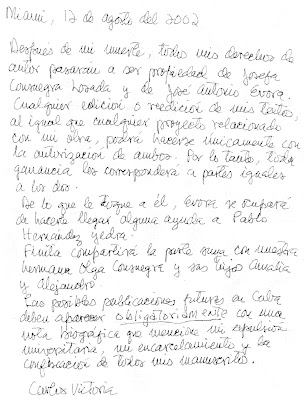 Miami, 12 de agosto del 2002
Después de mi muerte, todos mis derechos de
autor pasarán a ser propiedad de Josefa
Consuegra Losada y de José Antonio Évora.
Cualquier edición o reedición de mis textos,
al igual que cualquier proyecto relacionado
con mi obra, podrá hacerse únicamente con
la autorización de ambos. Por lo tanto, toda
ganancia les corresponderá a partes iguales
a los dos.
De lo que le toque a él, Évora se ocupará
de hacerle llegar alguna ayuda a Pablo
Hernández Yedra.
Finita compartirá la parte suya con nuestra
hermana Olga Consuegra y sus hijos Amalia
y Alejandro.
Las posibles publicaciones futuras en Cuba
deben aparecer obligatoriamente con una
nota biográfica que mencione mi expulsión
universitaria, mi encarcelamiento y la
confiscación de todos mis manuscritos.
Carlos Victoria